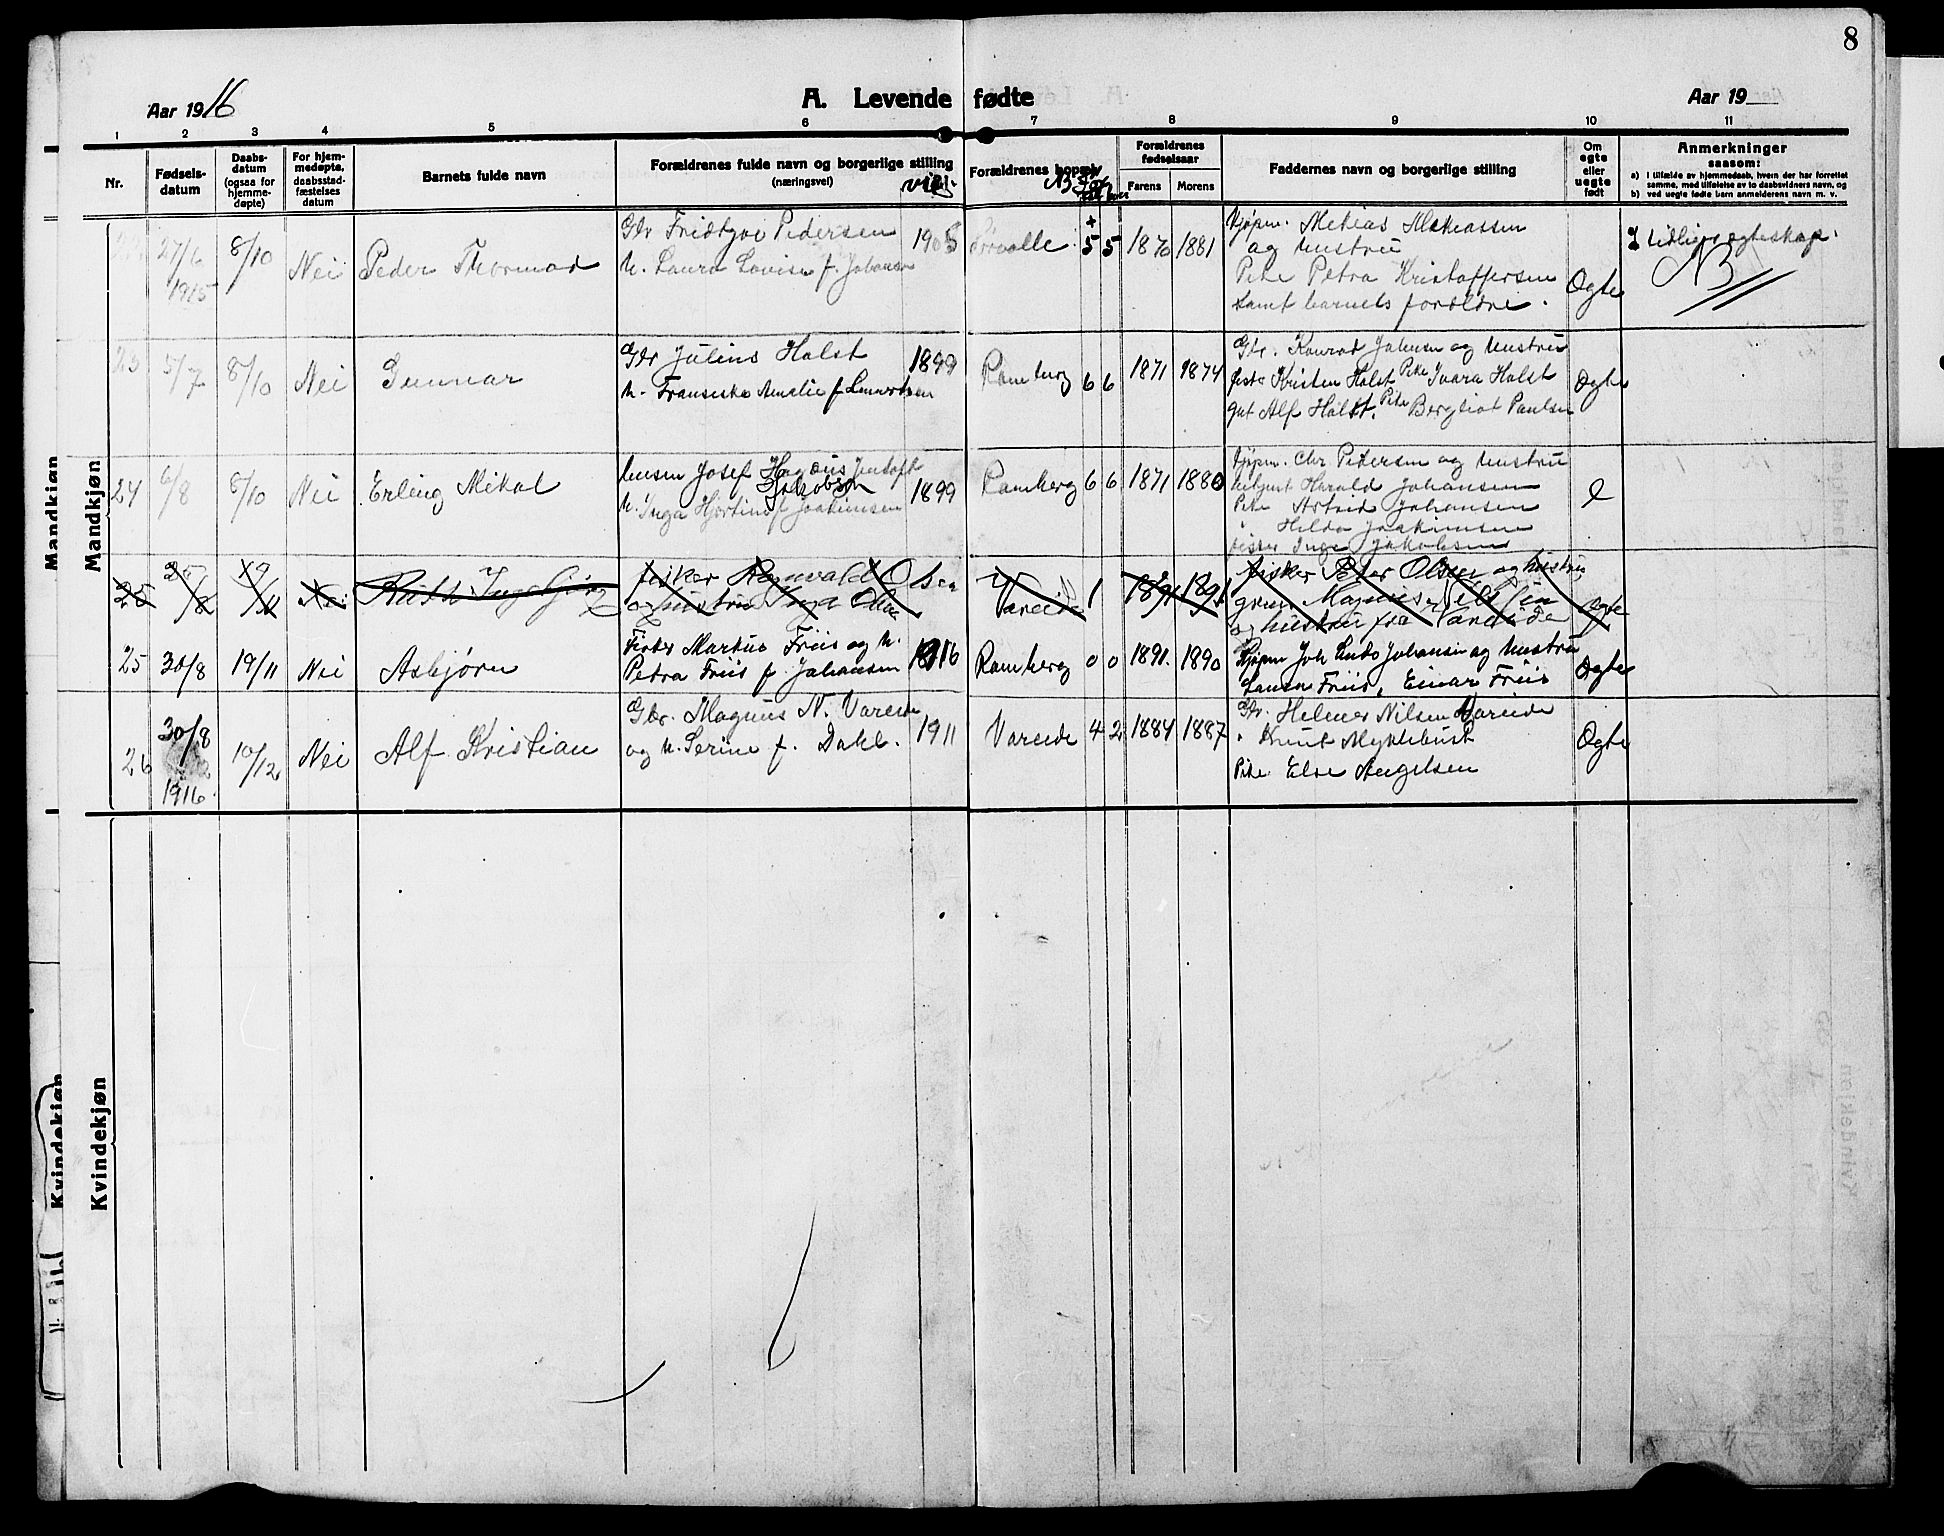 8
Aar 1916
A. Levende fødte
Aar 19
1 2 3 4 5 6 7 8 9 10 11
Nr.
Fødsels-
datum
Daabs-
datum
(ogsaa for
hjemme-
døpte)
For hjem-
medøpte,
daabsstad-
fæstelses
datum
Barnets fulde navn
Forældrenes fulde navn og borgerlige stilling
(næringsvei)
viet.
Forældrenes bopæl
Forældrenes
fødselsaar
Farens Morens
Faddernes navn og borgerlige stilling
Om
egte
eller
uegte
født
Anmerkninger
saasom:
a) i tilfælde av hjemmedaab, hvem der har forrettet
samme, med tilføielse av to daabsvidners navn, og
b) ved uegte fødte barn anmelderens navn m. v.
Mandkjøn
Mandkjøn
27/6
1915
8/10
Nei
Peder Thormod
Gbr Fridtjov Pedersen
h. Laura Lovise f. Johansen
1905
+
5 5
1870 1881
Kjøpm. Mekias Mekiassen
og hustru
Pike Petra Kristoffersen
samt barnets forældre.
Ogte
I tidligere egteskap.
NB
23 5/7 8/10 Nei Gunnar
Gbr Julius Holst
h. Fransiska Amalie f. Lennertsen
1899
Ramberg 6 6 1871 1874
Gbr. Konrad Johnsen og hustru
fisker Kristen Holst Pike Ivara Holst
gut Alf Holst. Pike Bergliot Paulsen
Ogte
24 6/8 8/10 Nei Erling Mikal
Josef Hagæus Jentoft
Jakobsen
h. Inga Hjertine f Joakimsen
1899
Ramberg 6 6 1871 1880
Kjøpm. Chr Pedersen og hustru
Harald Johansen
Pike Astrid Johansen
" Hilda Joakimsen
fisker Inge Jakobsen
e
25 25/8 19/11 Nei Ruth Ingebjørg
fisker Ragnvald Olsen
og hustru Inga Olsen
Vareide 1 1891 1891
fisker Peder Olsen og hustru
Magnus Nilssen
og hustru fra Vareide
Ogte
25 30/8 19/11 Nei Asbjørn
Fisker Markus Friis og h.
Petra Friis f Johansen
1916
Ramberg 0 0 1891. 1890
Kjøpm Joh Johansen og hustru
Laura Friis, Einar Friis
Ogte
26 30/8
1916.
10/12 Nei Alf Kristian
Gbr. Magnus N. Vareide
og h. Serine f. Dahl.
1911
Vareide 4 2 1884 1887
Gbr. Helmer Nilsen Vareide
" Knut Myklebust
Pike Else Angelsen
Ogte
Kvindekjøn
Kvindekjøn